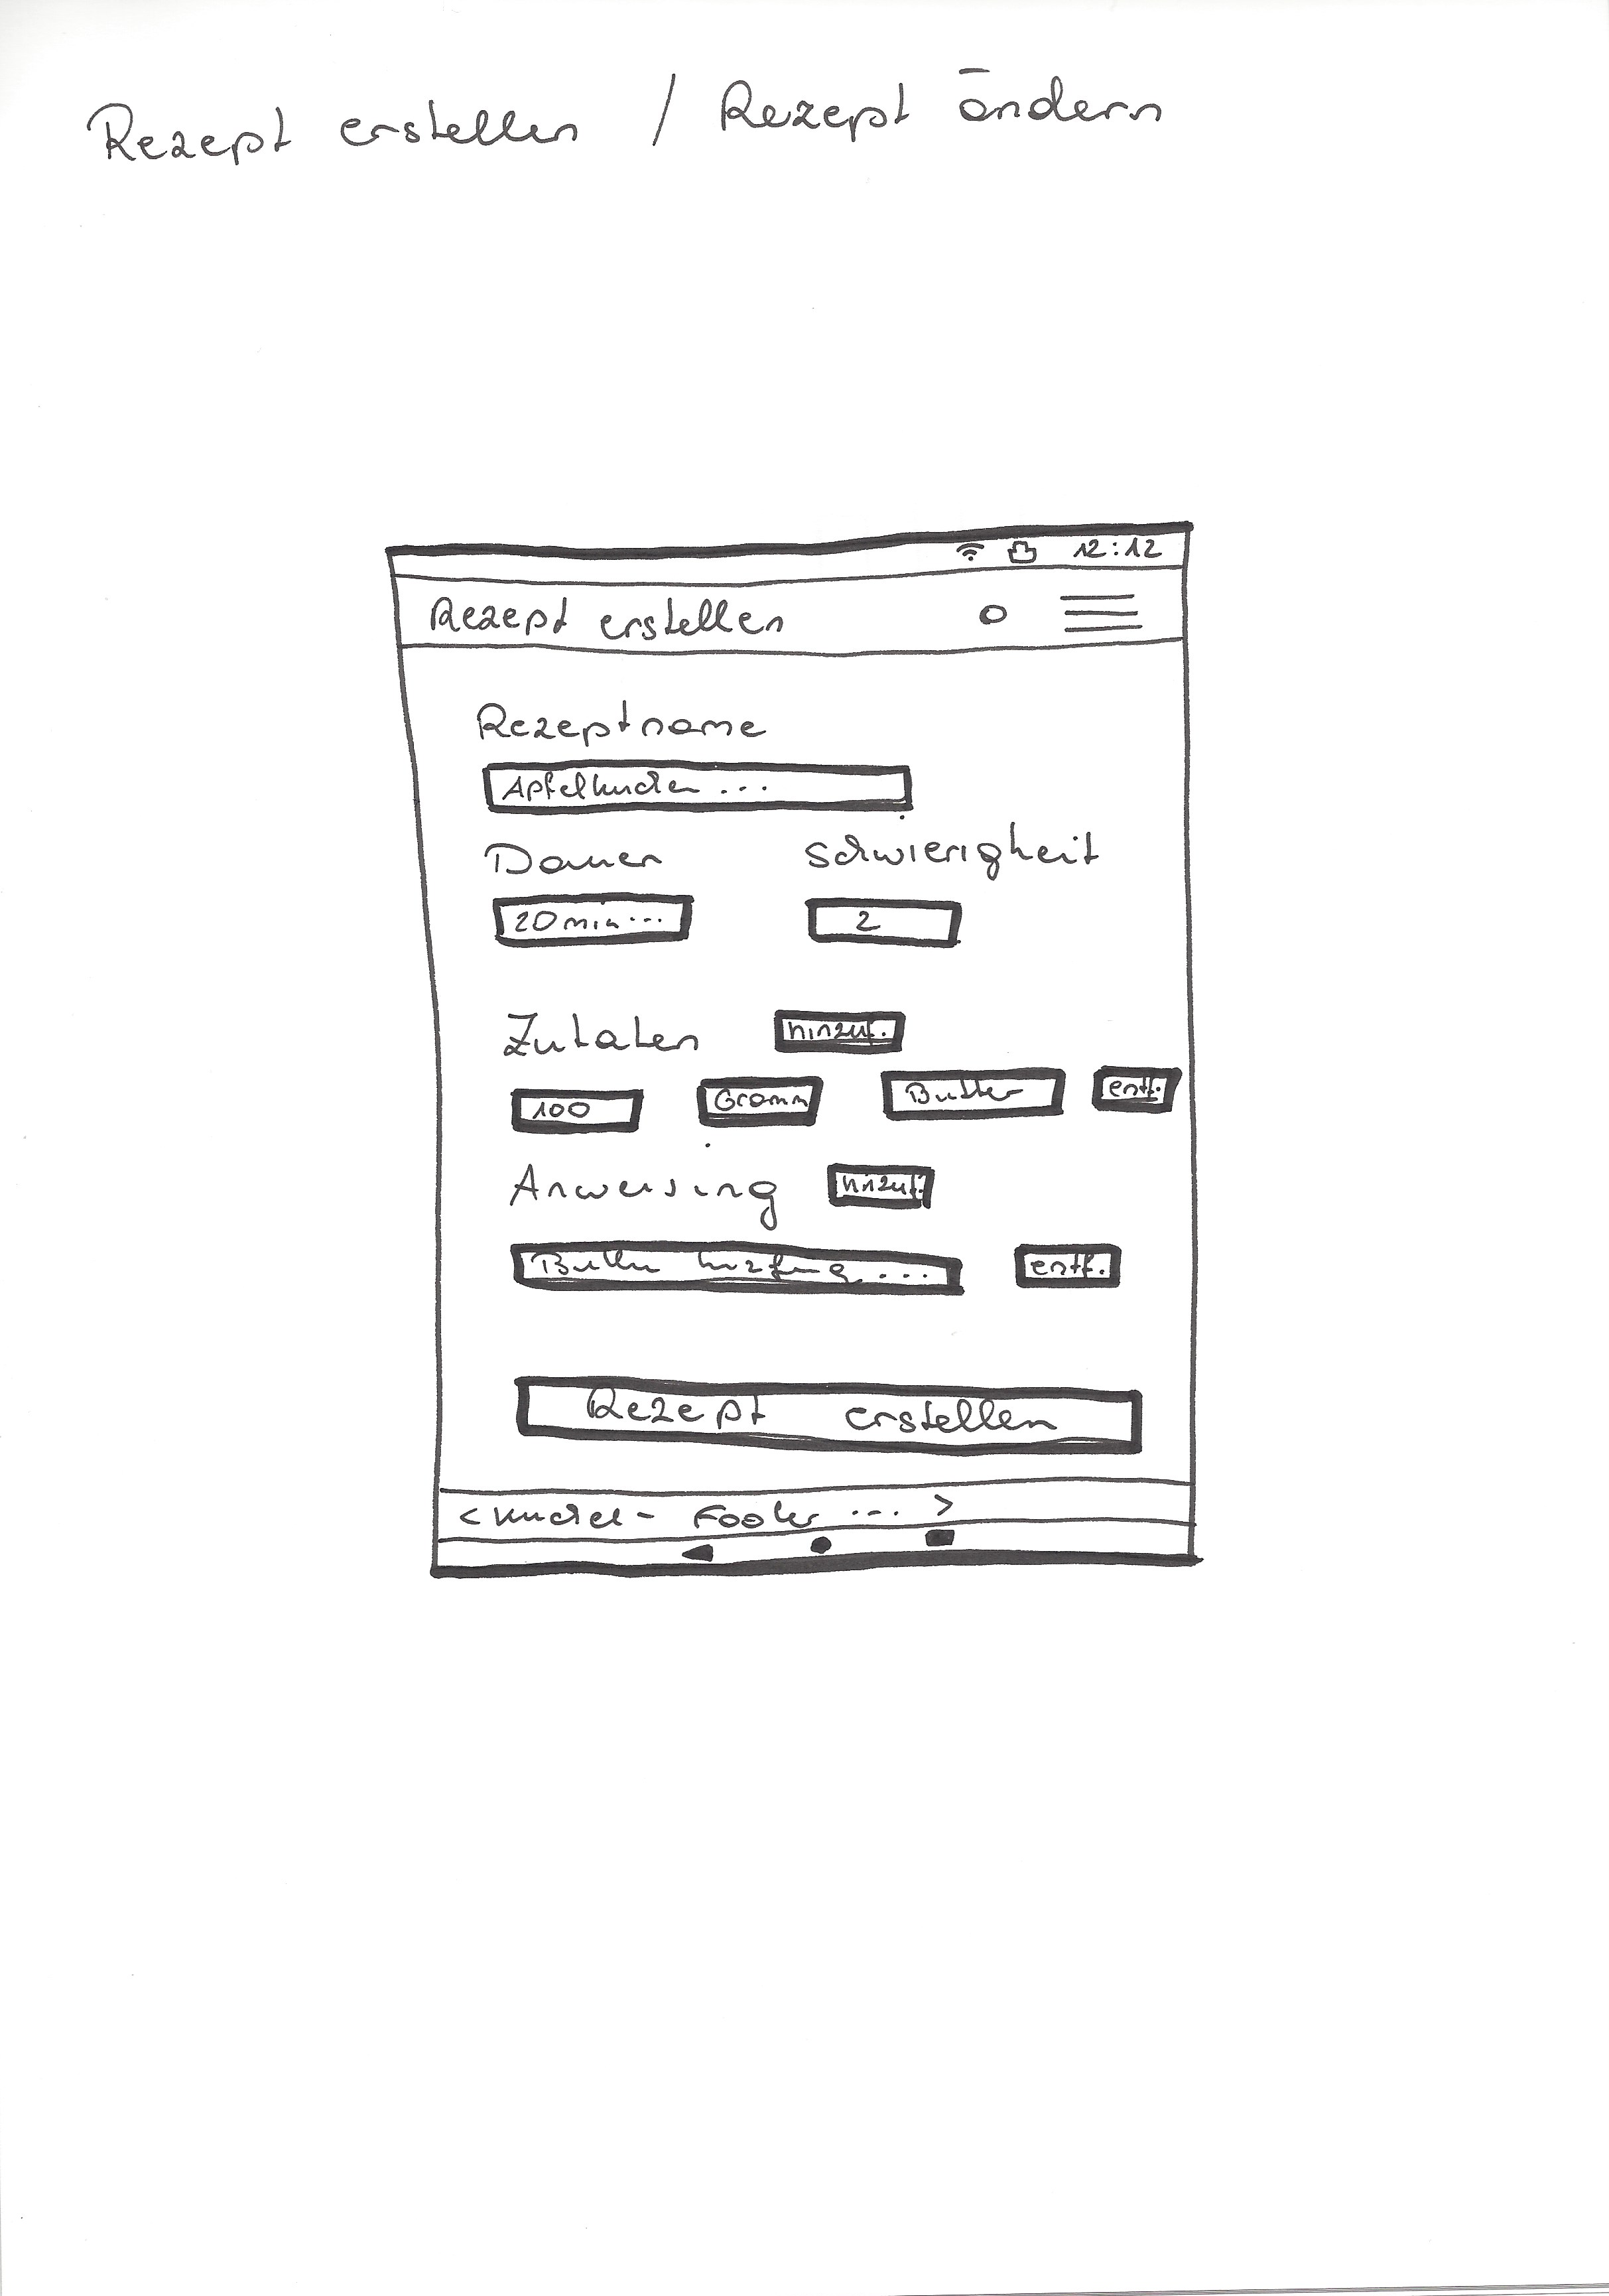 Rezept erstellen / Rezept ändern
12:12
Rezept erstellen
Rezeptname
Apfelkuchen ...
Dauer Schwierigkeit
20min... 2
Zutaten hinzuf.
100 Gramm Butter entf.
Anweisung hinzuf.
Butter ...
entf.
Rezept erstellen
< Kuchel- Footer ... >